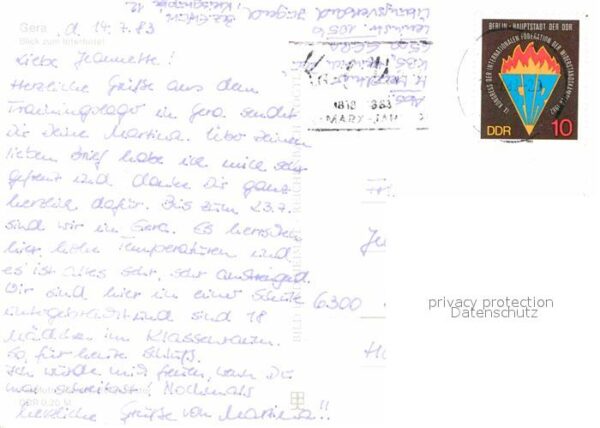 Gera, d. 14.7.83
Blick zum Interhotel
Liebe Jeannette!
Herzliche Grüße aus dem
Trainingslager in Gera sendet
Dir Deine Martina. Über Deinen
lieben Brief habe ich mich sehr
gefreut und danke Dir ganz
herzlich dafür. Bis zum 23.7.
sind wir in Gera. Es herrschen
hier hohe Temperaturen und
es ist alles sehr, sehr anstrengend.
Wir sind hier in einer Schule
untergebracht und sind 18
Mädchen im Klassenraum.
So, für heute Schluß.
Ich würde mich freuen, wenn Du
mal schreibst! Nochmals
herzliche Grüße von Martina!!
1818 1883
MARX-JAHR
BERLIN - HAUPTSTADT DER DDR
IX. KONGRESS DER INTERNATIONALEN FÖDERATION DER WIDERSTANDSKÄMPFER 1982
DDR 10
6300
privacy protection
Datenschutz